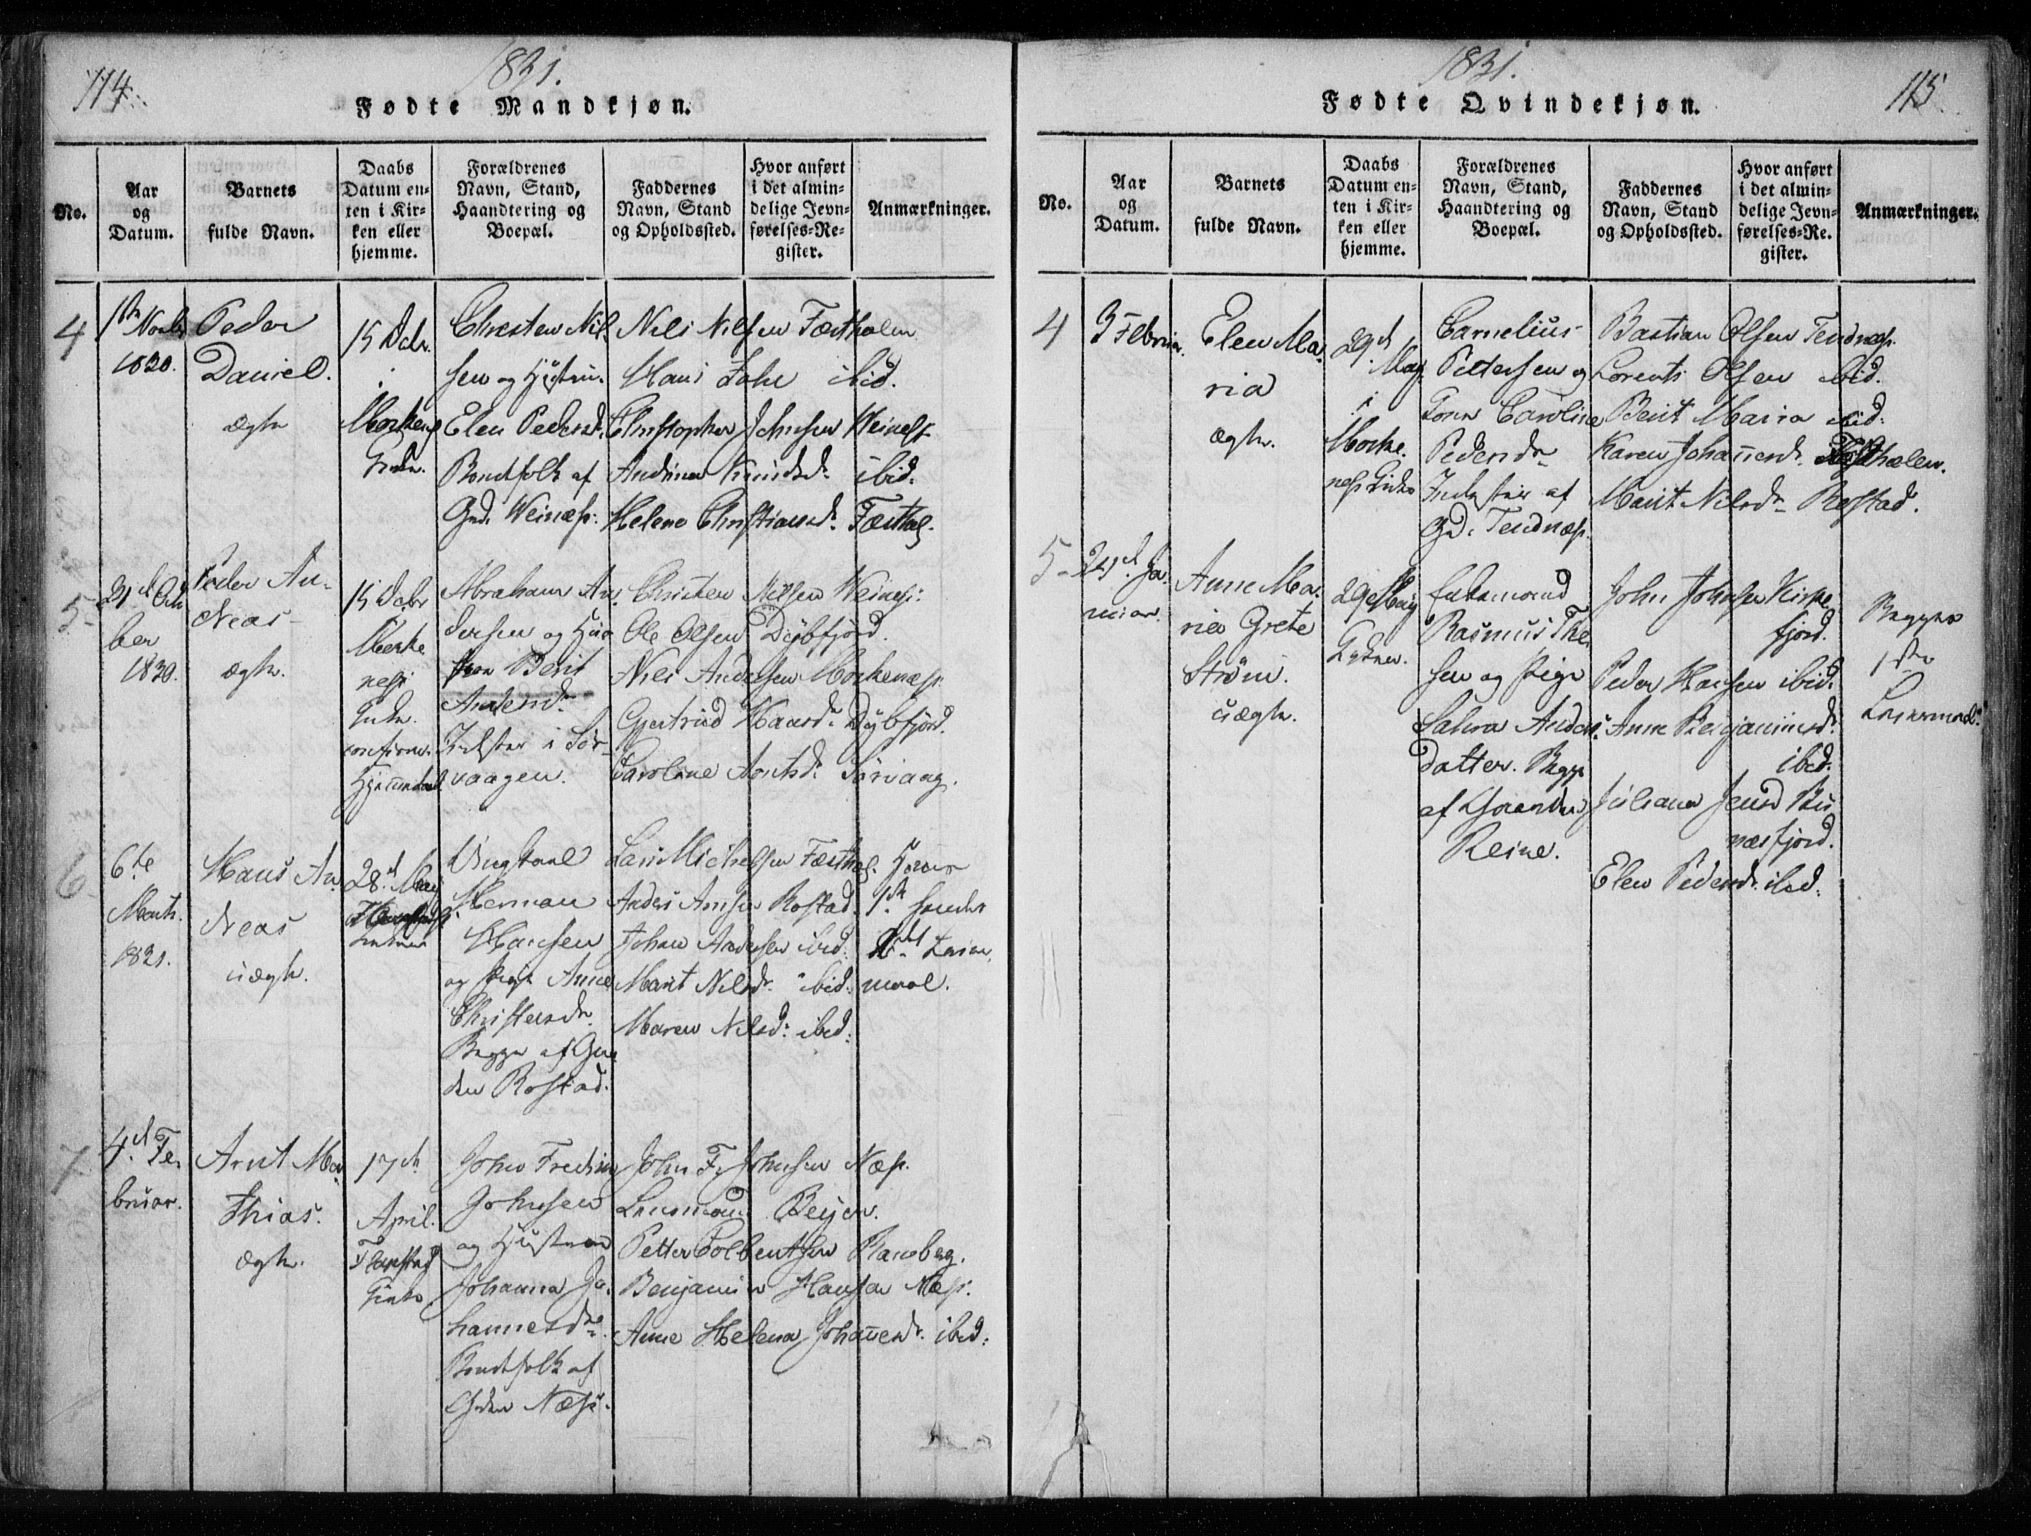 114.
1831.
Fødte Mandkjøn.
No.
Aar
og
Datum.
Barnets
fulde Navn.
Daabs
Datum en-
ten i Kir-
ken eller
hjemme.
Forældrenes
Navn, Stand,
Haandtering og
Boepæl.
Faddernes
Navn, Stand
og Opholdssted.
Hvor anført
i det almin-
delige Jevn-
førelses-Re-
gister.
Anmærkninger.
4
1830.
Peder
Daniel.
ægte
15 Decbr.
i
Christen Nil-
sen og Hustru
Elen Pedersd.
Bondefolk af
Grd. Weinæs:
Nils Nilsen Færtholen
Hans ibid.
Christopher Johnsen Weinæs
Andrina Knudsd: ibid:
Helene Christiansd: Færthol.
5
31 Octo
ber
1830.
Peder An-
dreas
ægte.
15 Decbr
Morke
næs
Kirke.
Abraham An-
dersen og Hu
Berit
Andersd:
i Sør-
vaagen.
Christen Nilsen Weinæs:
Ole Olsen Dybfjord.
Nils Andersen Morkenæs.
Gjertrud Hansd: Dybfjord.
Caroline Arntsd: Sørvaag.
6
6te
Marts.
1831.
Hans An-
dreas
uægte.
28d May
Ungkarl
Herman
Hansen
og Pige Anne
Christensdr.
Begge af Gaa
den Rostad.
Lars Michelsen Færthol.
Anders Arnsen Rostad.
Johan Andersen ibid:
Marit Nilsdr. ibid:
Maren Nilsd: ibid:
7
4d Fe-
bruar.
Arnt Ma-
thias.
ægte.
17de
April.
Flakstad
Kirke.
John Fredrik
Johnsen
og Hustrue
Johanna Jo-
hannesdr.
Bondefolk af
Gaarden Næss.
John F. Johnsen Næs.
Lensmand Beyer.
Petter Colbentsen Ramberg.
Benjamin Hansen Næs.
Anne Helena Johannesdr. ibid:
1831.
115
Fødte Qvindekjøn.
No.
Aar
og
Datum.
Barnets
fulde Navn.
Daabs
Datum en-
ten i Kir-
ken eller
hjemme.
Forældrenes
Navn, Stand,
Haandtering og
Boepæl.
Faddernes
Navn, Stand
og Opholdssted.
Hvor anført
i det almin-
delige Jevn-
førelses-Re-
gister.
Anmærkninger.
4
3 Februar.
Elen Ma-
ria
ægte.
29d
May
i
Morke-
næs Kirke
Cornelius
Pettersen og
Kone Caroline
Pedersdr
af
Gd. Tendnæs.
Bastian Olsen Tendnæs.
Lorents Olsen ibid.
Berit Maria ibid:
Karen Johannesd. Færtholen.
Marit Nilsdr Rostad.
5
24d Ja-
nuar.
Anne Ma-
ria Grete
Strøm.
uægte.
29 May
Rasmus The
sen og Pige
Anders
datter. Begge
af Gaarden
Reine.
John Johnsen Kirke
fjord.
Peder Hansen ibid:
Anne Benjaminsd:
ibid:
Juliana Jensd Bu
næsfjord.
Elen Pedersdr. ibid:
Begges
1ste
Leiermaal.